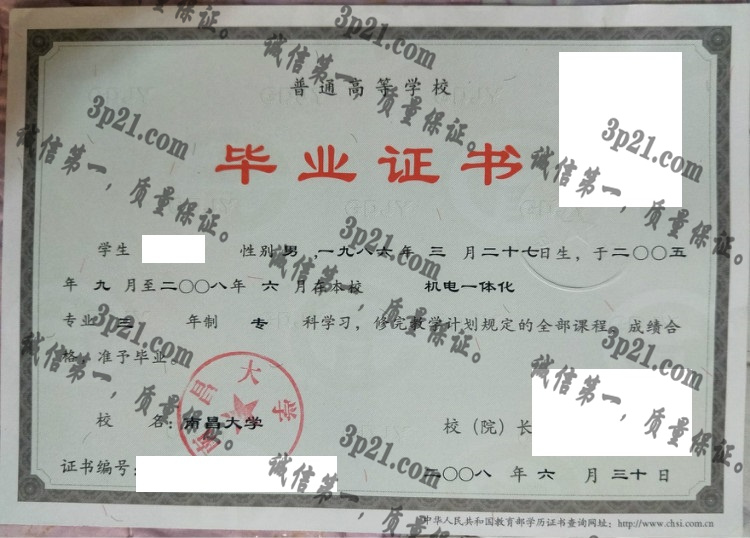 普通高等学校
毕业证书
学生 性别 男 ,一九八六年 三 月二十七日生，于二〇〇五
年 九 月至二〇〇八年 六 月在本校 机电一体化
专业 三 年制 专 科学习，修完教学计划规定的全部课程，成绩合
格，准予毕业。
南昌大学
校 名：南昌大学 校（院）长
证书编号： 二〇〇八 年 六 月 三十 日
中华人民共和国教育部学历证书查询网址：http://www.chsi.com.cn
3p21.com
诚信第一，质量保证。
3p21.com
诚信第一，质量保证。
3p21.com
诚信第一，质量保证。
3p21.com
诚信第一，质量保证。
3p21.com
诚信第一，质量保证。
3p21.com
诚信第一，质量保证。
3p21.com
诚信第一，质量保证。
3p21.com
诚信第一，质量保证。